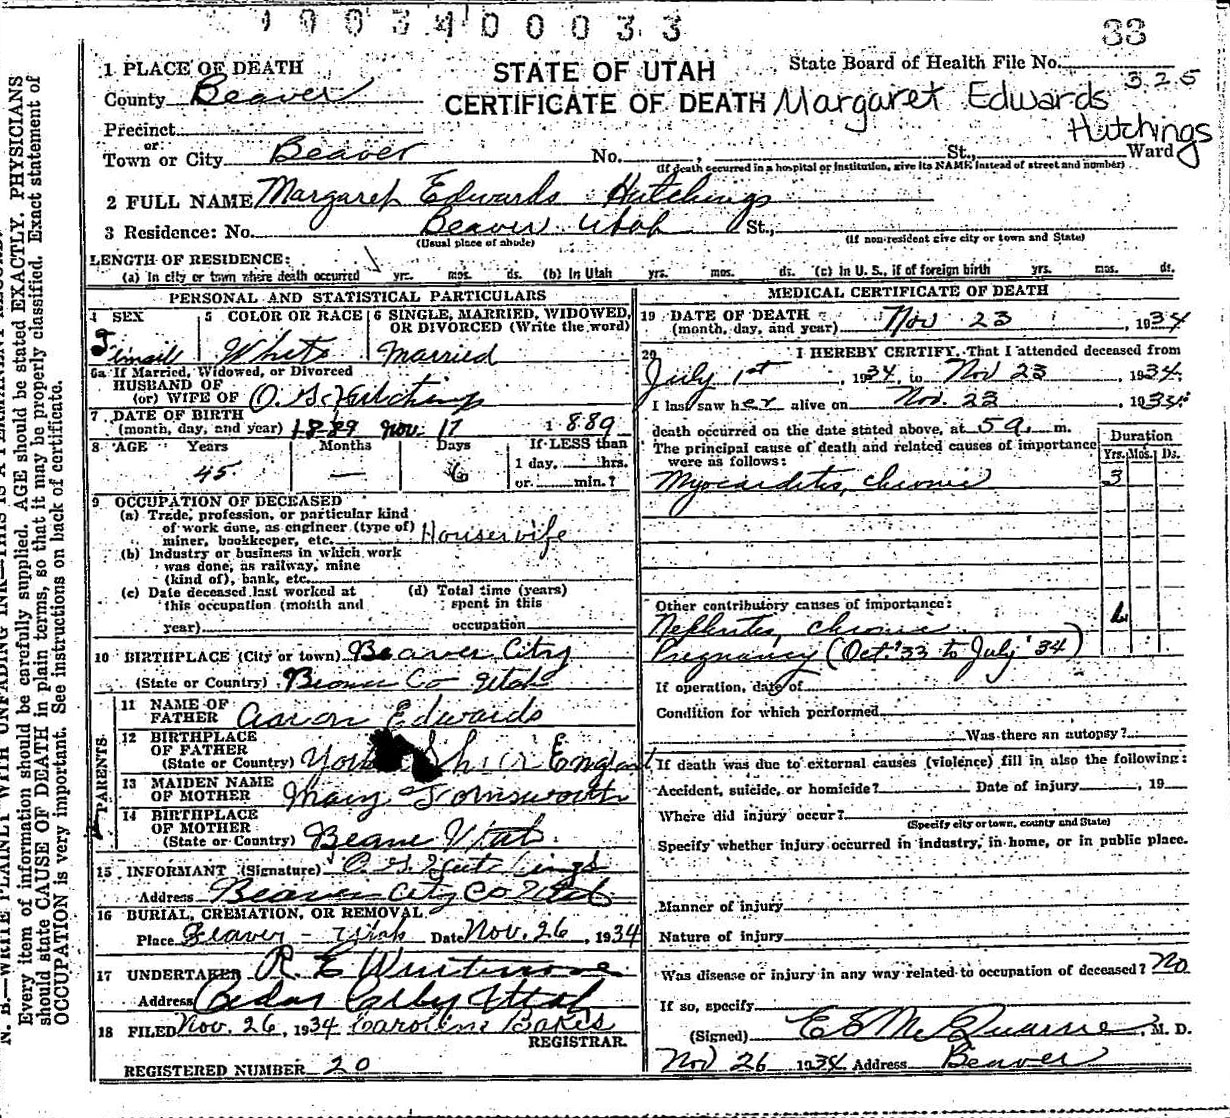 1903400033
33
1 PLACE OF DEATH
STATE OF UTAH
State Board of Health File No.
325
County Beaver
CERTIFICATE OF DEATH Margaret Edwards
Hutchings
Precinct
or
Town or City Beaver No. , St., Ward
(If death occurred in a hospital or institution, give its NAME instead of street and number)
2 FULL NAME Margaret Edwards Hutchings
3 Residence: No. Beaver Utah St.,
(Usual place of abode) (If non-resident give city or town and State)
LENGTH OF RESIDENCE:
(a) In city or town where death occurred yrs. mos. ds. (b) In Utah yrs. mos. ds. (c) In U. S., if of foreign birth yrs. mos. ds.
PERSONAL AND STATISTICAL PARTICULARS
4 SEX
Female
5 COLOR OR RACE
White
6 SINGLE, MARRIED, WIDOWED, OR DIVORCED (Write the word)
Married
6a If Married, Widowed, or Divorced
HUSBAND OF
(or) WIFE OF O. G. Hutchings
7 DATE OF BIRTH
(month, day, and year) 1889 Nov. 17 1889
8 AGE Years Months Days If LESS than
45 — 6 1 day, hrs.
or min.?
9 OCCUPATION OF DECEASED
(a) Trade, profession, or particular kind
of work done, as engineer (type of)
miner, bookkeeper, etc. Housewife
(b) Industry or business in which work
was done, as railway, mine
(kind of), bank, etc.
(c) Date deceased last worked at
this occupation (month and
year)
(d) Total time (years)
spent in this
occupation
10 BIRTHPLACE (City or town) Beaver City
(State or Country) Beaver Co Utah
PARENTS
11 NAME OF
FATHER Aaron Edwards
12 BIRTHPLACE
OF FATHER
(State or Country) England
13 MAIDEN NAME
OF MOTHER Mary
14 BIRTHPLACE
OF MOTHER
(State or Country) Utah
15 INFORMANT (Signature) O. G. Hutchings
Address Beaver City Co Utah
16 BURIAL, CREMATION, OR REMOVAL
Place Beaver - Utah Date Nov. 26, 1934
17 UNDERTAKER
Address Cedar City Utah
18 FILED Nov. 26, 1934 Caroline Bakes
REGISTRAR.
REGISTERED NUMBER 20
MEDICAL CERTIFICATE OF DEATH
19 DATE OF DEATH
(month, day, and year) Nov 23, 1934
20 I HEREBY CERTIFY, That I attended deceased from
July 1st, 1934, to Nov 23, 1934.
I last saw her alive on Nov. 23, 1934.
death occurred on the date stated above, at 5 a. m.
The principal cause of death and related causes of importance
were as follows:
Duration
Yrs. Mos. Ds.
Myocarditis, chronic 3
Other contributory causes of importance:
Nephritis, chronic
Pregnancy (Oct. '33 to July '34)
If operation, date of
Condition for which performed
Was there an autopsy?
If death was due to external causes (violence) fill in also the following:
Accident, suicide, or homicide? Date of injury , 19
Where did injury occur?
(Specify city or town, county and State)
Specify whether injury occurred in industry, in home, or in public place.
Manner of injury
Nature of injury
Was disease or injury in any way related to occupation of deceased? No
If so, specify
(Signed) M. D.
Nov 26 1934 Address Beaver
N. B.—WRITE PLAINLY WITH UNFADING INK—THIS IS A PERMANENT RECORD.
Every item of information should be carefully supplied. AGE should be stated EXACTLY. PHYSICIANS
should state CAUSE OF DEATH in plain terms, so that it may be properly classified. Exact statement of
OCCUPATION is very important. See instructions on back of certificate.